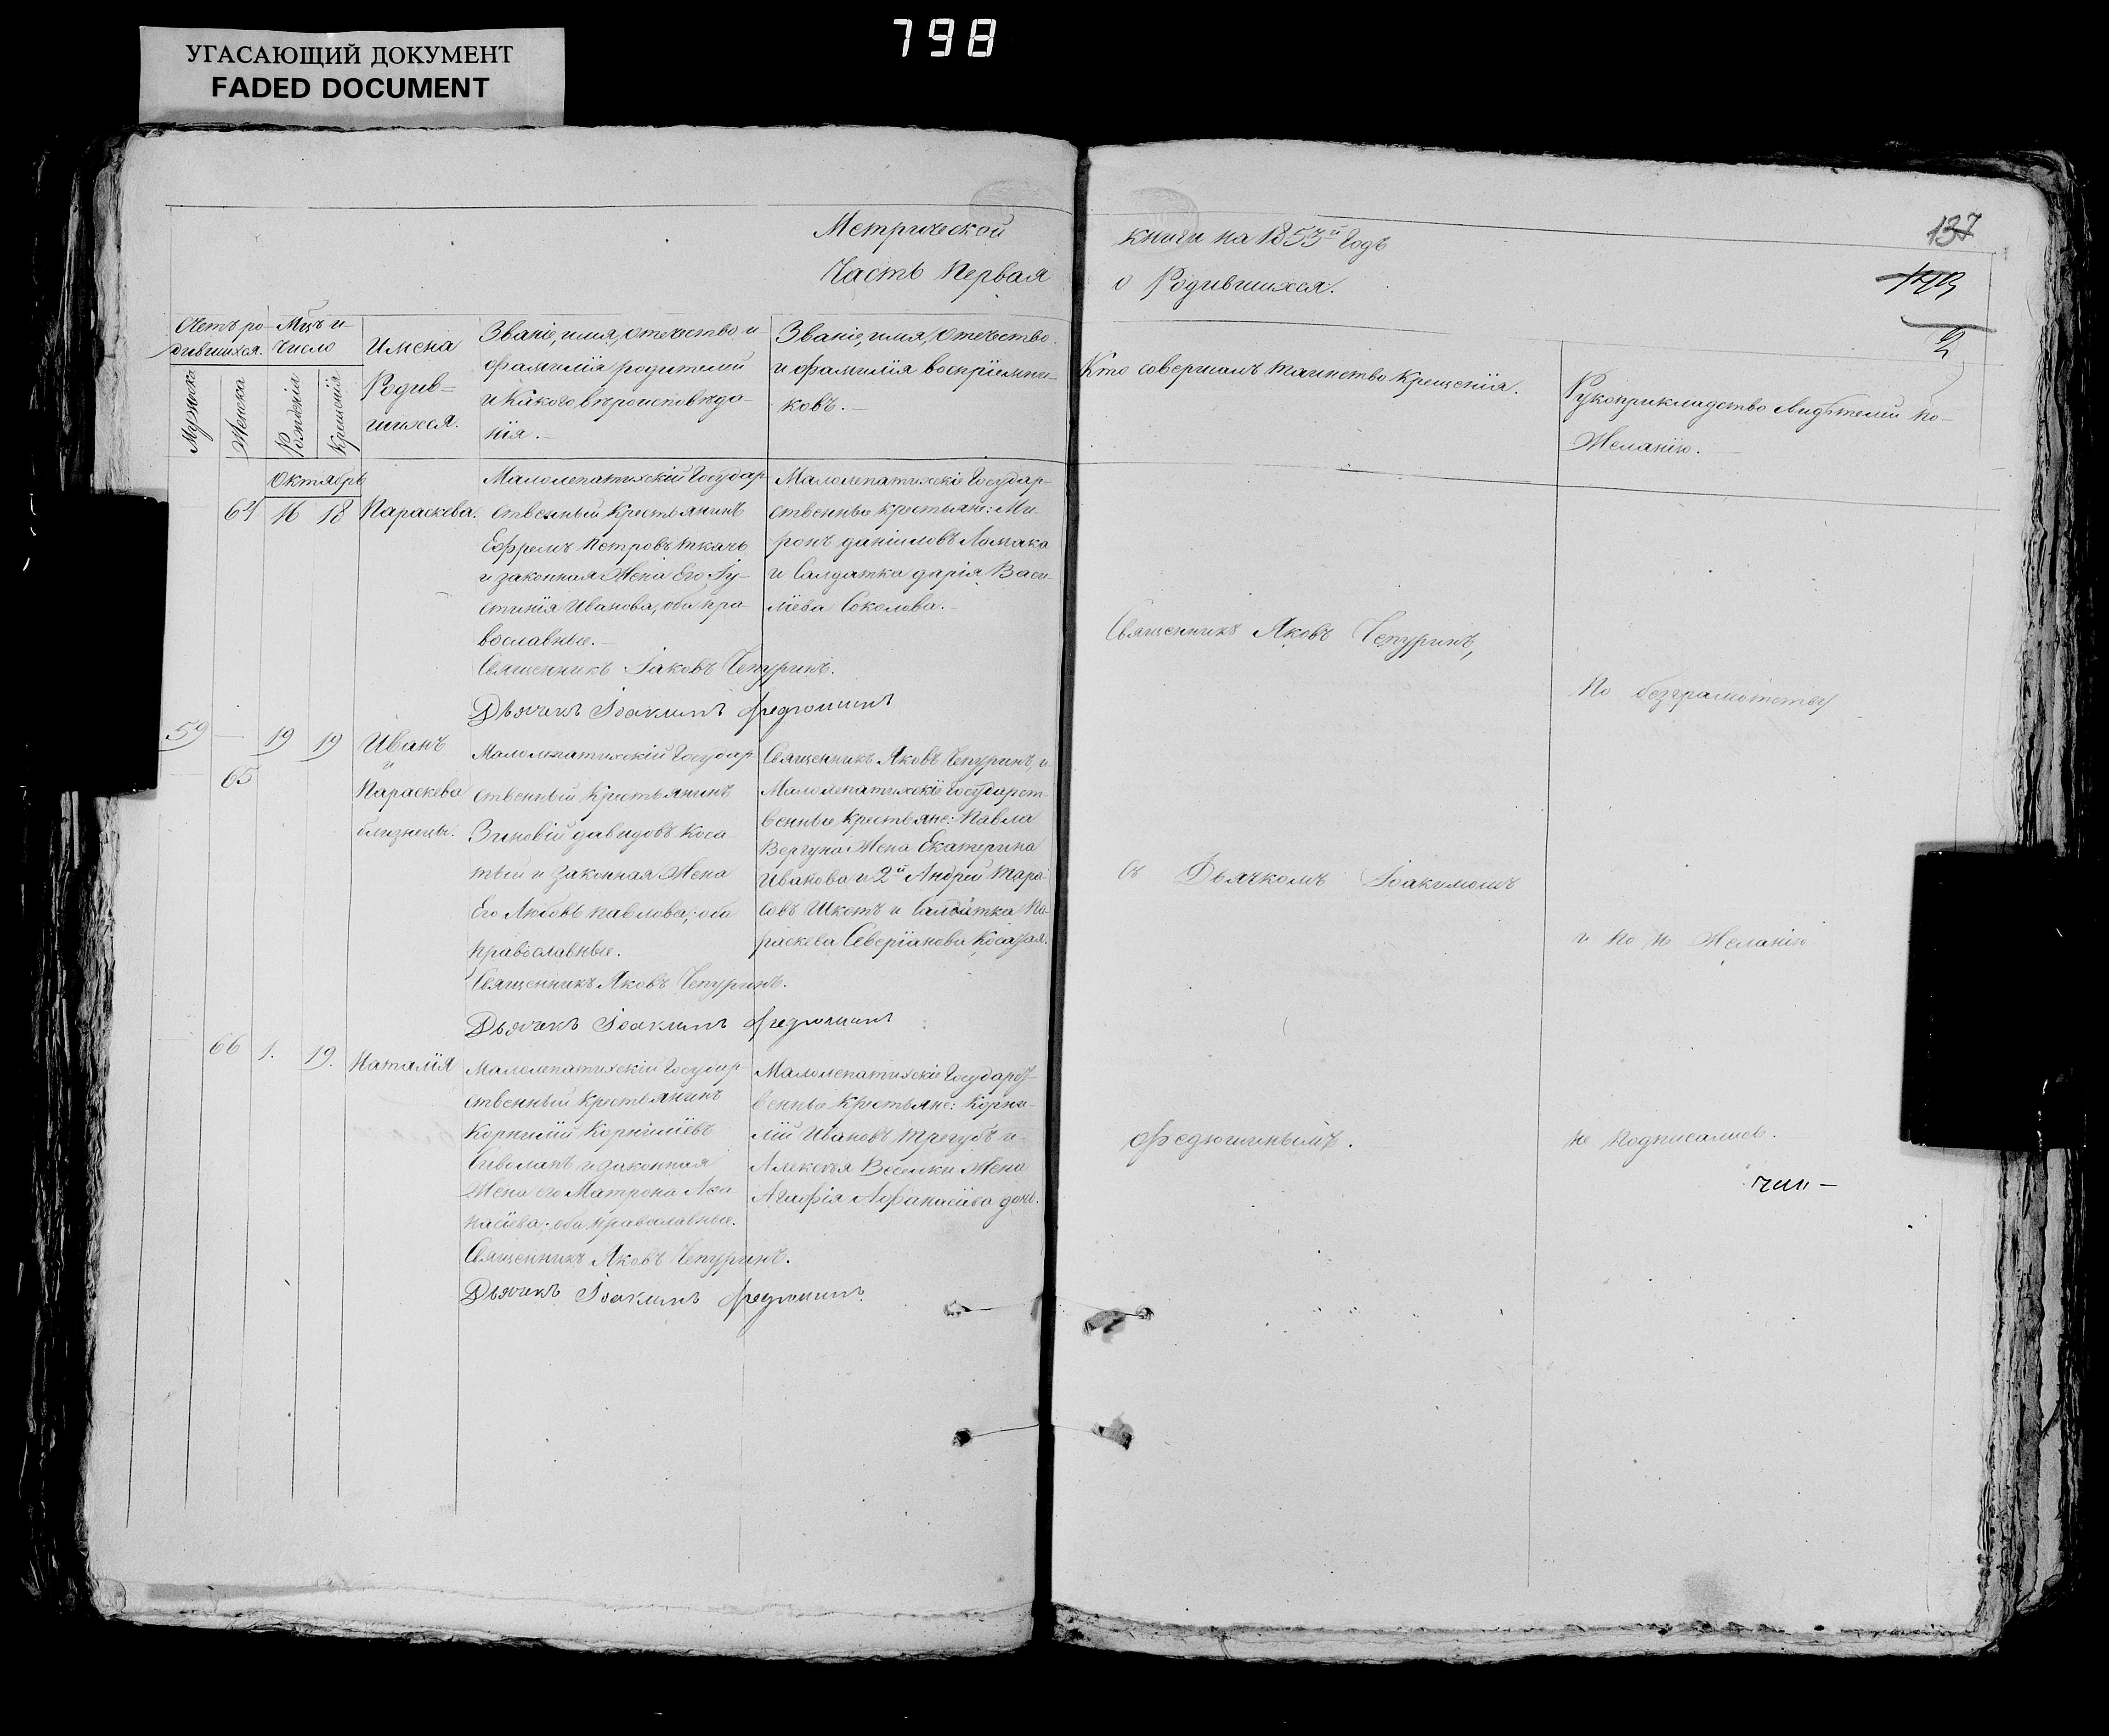 798
УГАСАЮЩИЙ ДОКУМЕНТ
FADED DOCUMENT
Метрической
Часть Первая
книги на 1853й Годъ
о Родившихся.
137
2
Счетъ ро-
дившихся.
Мужеска
Женска
Мцъ и
Число
Рожденія
Крещенія
Имена
Родив-
шихся.
Званіе, имя, отечество, и
фамилія родителей
и какого вѣроисповѣда-
нія.-
Званіе, имя, Отечество.
и фамилія воспріемни-
ковъ.-
Кто совершалъ таинство крещенія.
Рукоприкладство свидѣтелей по-
Желанію.
Октябрь
64 16 18 Параскева.
Малолепатихскій Государ
ственный Крестьянинъ
Ефремъ Петровъ Ткачь
и законная Жена Его Іу-
стинія Иванова, оба пра-
вославные.-
Священникъ Іаковъ Чепуринъ.
Дьячекъ Іоакимъ Федюшинъ
Малолепатихскіе Государ-
ственные крестьяне: Ми-
ронъ даніиловъ Ломака
и Салдатка дарія Васи-
ліева Соколова.-
59 — 19 19 Иванъ
и
65
Параскева
близнецы.
Малолепатихскій Государ
ственный Крестьянинъ
Зиновій давидовъ Коса
тый и Законная Жена
Его Любовь павлова; оба
православные.
Священникъ Яковъ Чепуринъ.
Дьячекъ Іоакимъ Федюшинъ
Священникъ Яковъ Чепуринъ, и
Малолепатихскіе Государст-
венные крестьяне: Павла
Вергуна Жена Екатерина
Иванова и 2й Андрей Тара-
совъ Шкетъ и Салдатка Па-
раскева Северіанова Косатая.
66 1. 19. Наталія
Малолепатихскій Государ
ственный крестьянинъ
Корнилій Корниліевъ
Сиволапъ и законная
Жена его Матрона Афа
насіева; оба православные.
Священникъ Яковъ Чепуринъ.
Дьячекъ Іоакимъ Федюшинъ
Малолепатихскіе Государст-
венные Крестьяне: Корни-
лій Ивановъ Трегубъ и
Алексея Веселки Жена
Агафія Афанасіева дочь.
Священникъ Яковъ Чепуринъ,
съ Дьячкомъ Іоакимомъ
Федюшинымъ.
По безграмотству
и по не Желанію
не подписались.